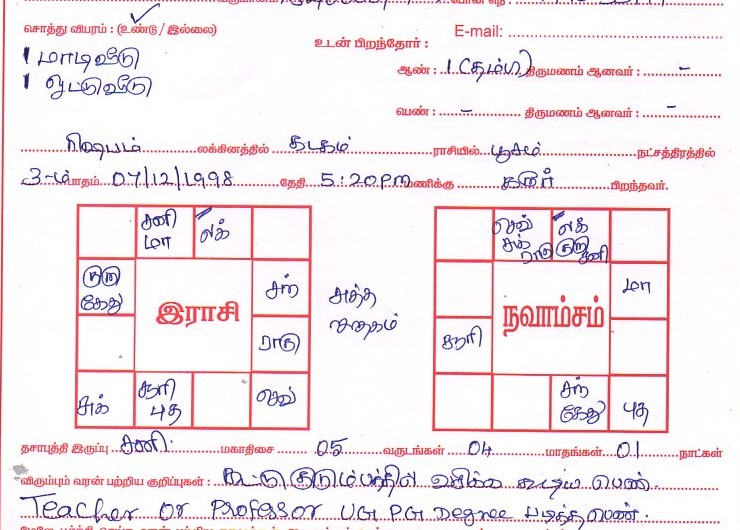 சொத்து விபரம் : (உண்டு / இல்லை)
E-mail:
1 மாடிவீடு
உடன் பிறந்தோர் :
1 ஓட்டுவீடு
ஆண் : 1 (தம்பி) திருமணம் ஆனவர் : -
பெண் : - திருமணம் ஆனவர் : -
ரிஷபம் லக்கினத்தில் கடகம் ராசியில் பூசம் நட்சத்திரத்தில்
3-ம் பாதம் 07/12/1998 தேதி 5:20pm மணிக்கு கரூர் பிறந்தவர்.
சனி மா லக்
குரு கேது இராசி சந்
ராகு
சுக் சூரி புத செவ்
சுத்த ஜாதகம்
செவ் சுக் ராகு லக் குரு சனி
நவாம்சம் மா
சூரி
சந் கேது புத
தசாபுத்தி இருப்பு சனி மகாதிசை 05 வருடங்கள் 04 மாதங்கள் 01 நாட்கள்
விரும்பும் வரன் பற்றிய குறிப்புகள் : கூட்டு குடும்பத்தில் வசிக்க கூடிய பெண்.
Teacher or Professor UG PG Degree படித்த பெண்.